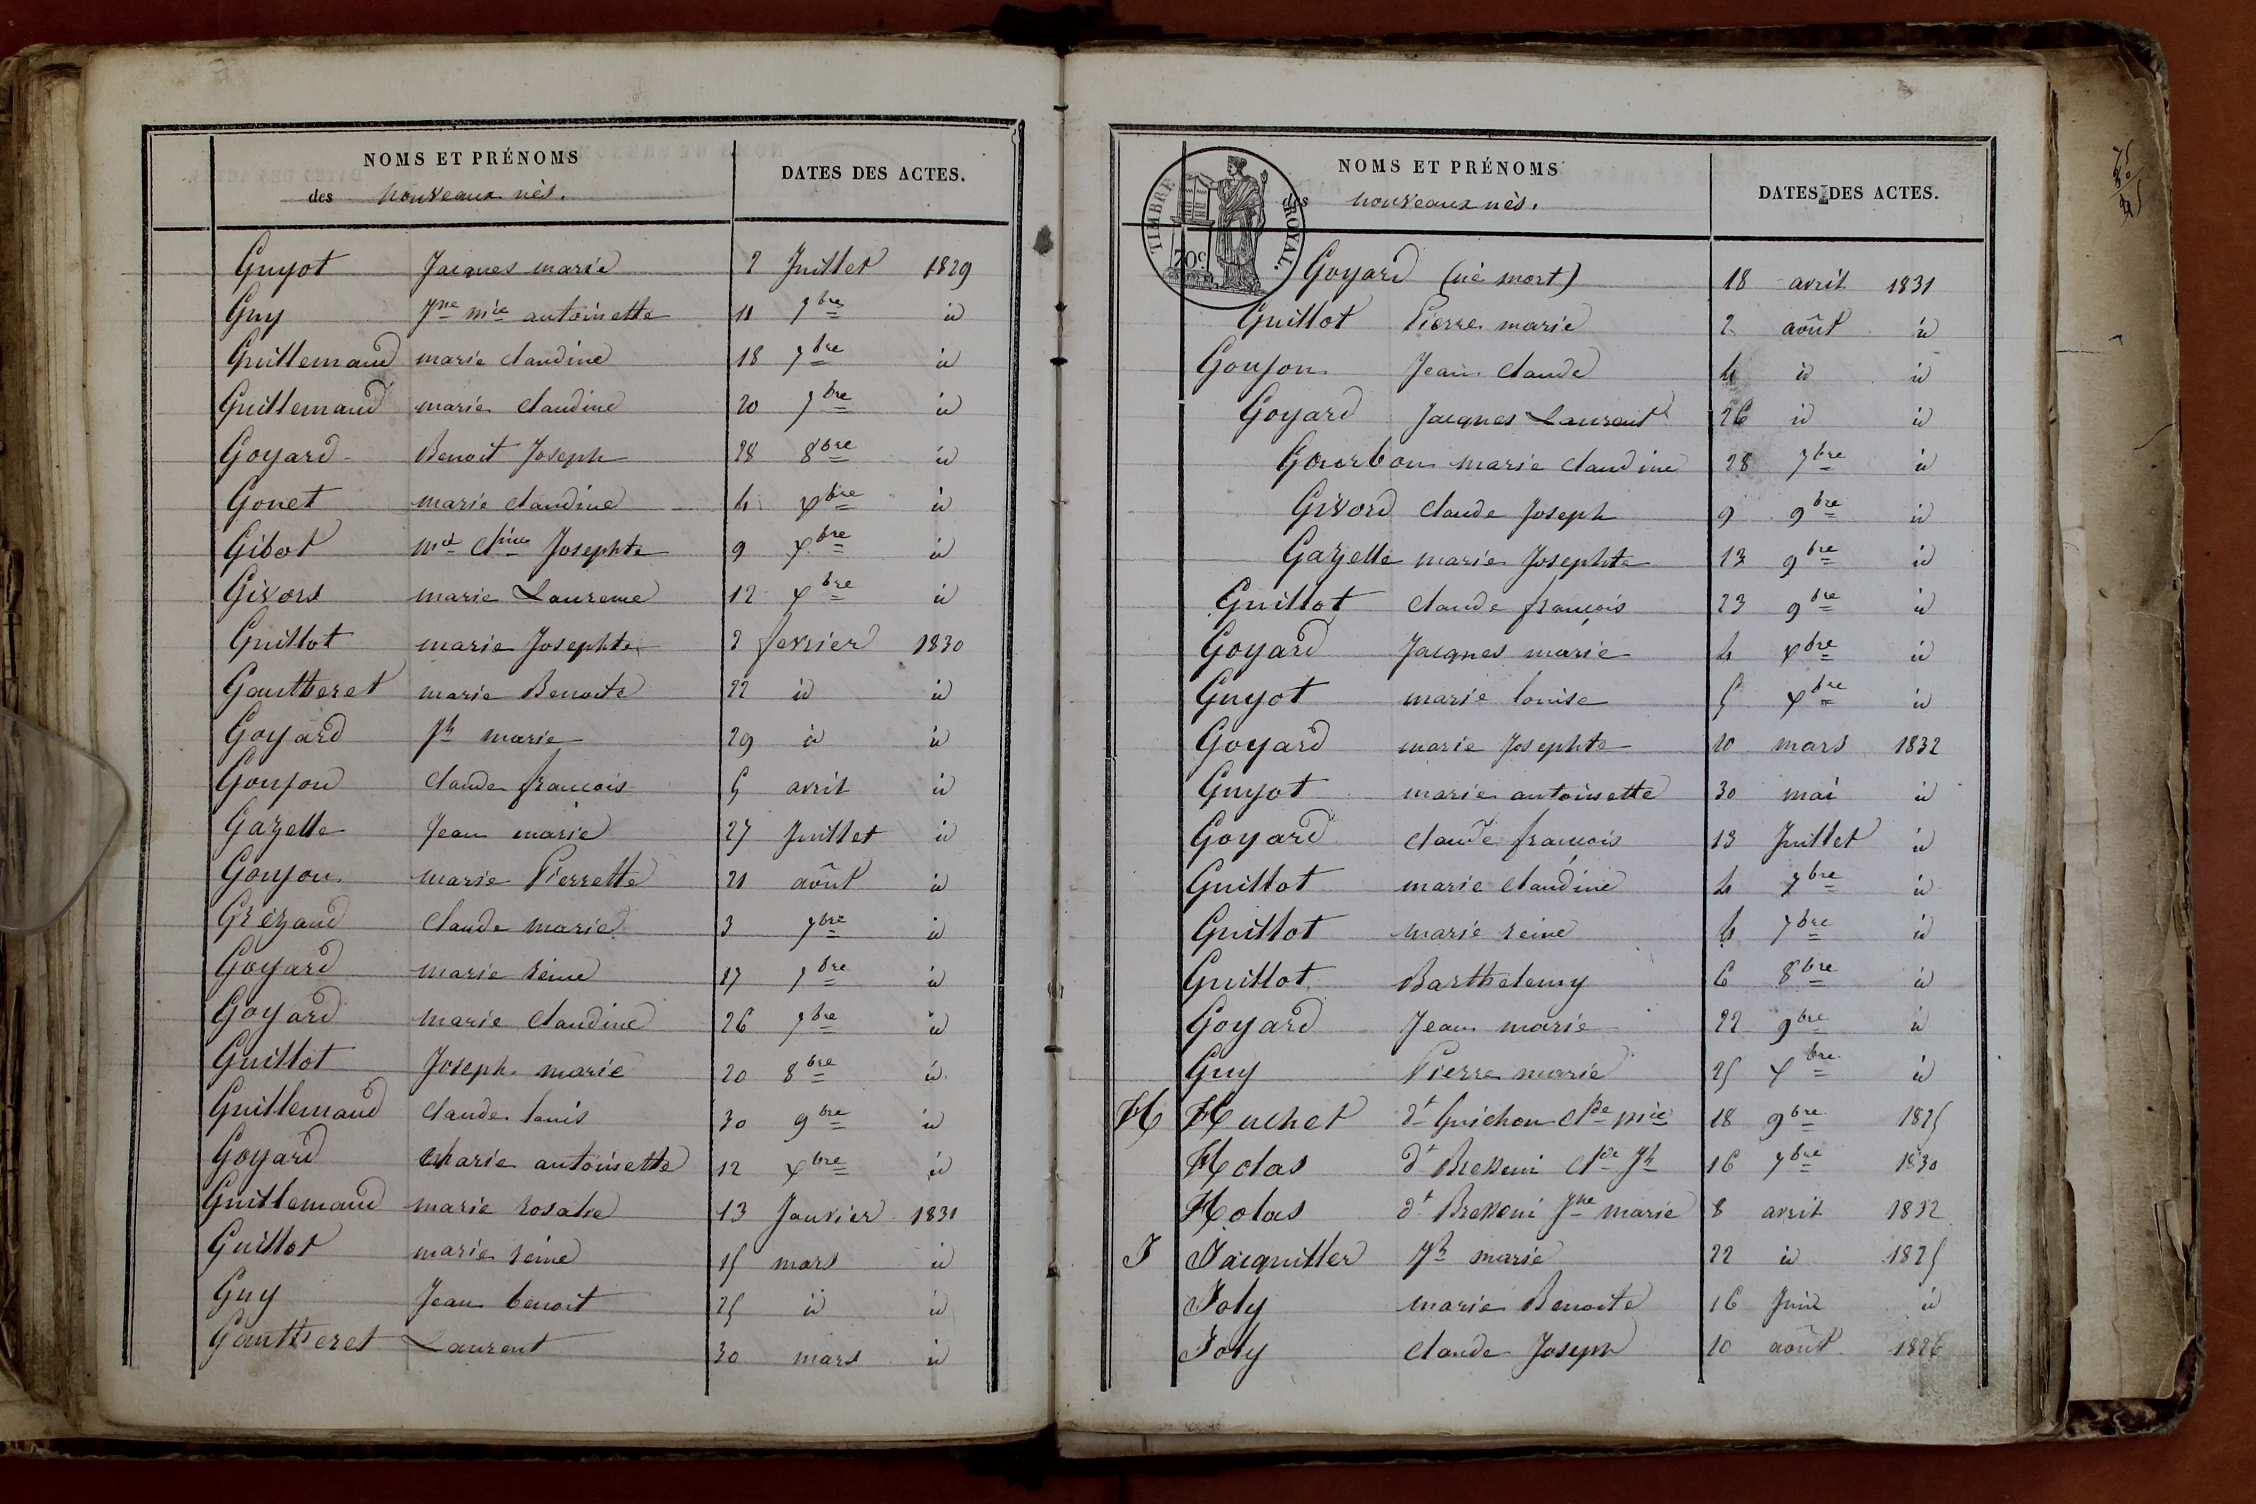 NOMS ET PRÉNOMS
des nouveaux nés.
DATES DES ACTES.
Guyot Jacques marie 2 Juillet 1829
Guy Jne mie antoinette 11 7bre id
Guillemaud marie claudine 18 7bre id
Guillemaud marie claudine 20 7bre id
Goyard Benoit Joseph 28 8bre id
Gonet marie claudine 4 xbre id
Gibot mie cdine Josephte 9 xbre id
Givors marie Laurence 12 xbre id
Guillot marie Josephte 2 fevrier 1830
Gauttheret marie Benoite 22 id id
Goyard Jh marie 29 id id
Goujon claude francois 5 avril id
Gazelle Jean marie 27 Juillet id
Goujon marie Pierrette 21 août id
Grézaud claude marie 3 7bre id
Goyard marie reine 17 7bre id
Goyard marie claudine 26 7bre id
Guillot Joseph marie 20 8bre id
Guillemaud claude louis 30 9bre id
Goyard marie antoinette 12 xbre id
Guillemaud marie rosalie 13 Janvier 1831
Guillot marie reine 15 mars id
Guy Jean benoit 25 id id
Gauttheret Laurent 30 mars id
NOMS ET PRÉNOMS
des nouveaux nés.
DATES DES ACTES.
TIMBRE ROYAL.
70c
Goyard (né mort) 18 avril 1831
Guillot Pierre marie 2 août id
Goujon Jean claude 4 id id
Goyard Jacques Laurent 26 id id
Gourbon marie claudine 28 7bre id
Givord claude Joseph 9 9bre id
Gazelle marie Josephte 13 9bre id
Guillot claude francois 23 9bre id
Goyard Jacques marie 4 xbre id
Guyot marie louise 5 xbre id
Goyard marie Josephte 10 mars 1832
Guyot marie antoinette 30 mai id
Goyard claude francois 13 Juillet id
Guillot marie claudine 4 7bre id
Guillot marie reine 4 7bre id
Guillot Barthelemy 6 8bre id
Goyard Jean marie 22 9bre id
Guy Pierre marie 25 xbre id
H Huchet dt Guichon cde mie 18 9bre 1825
Holas dt cde Jh 16 7bre 1830
Holas dt Jne marie 8 avril 1832
J Jacquiller Jh marie 22 id 1825
Joly marie Benoite 16 Juin id
Joly claude Joseph 10 août 1826